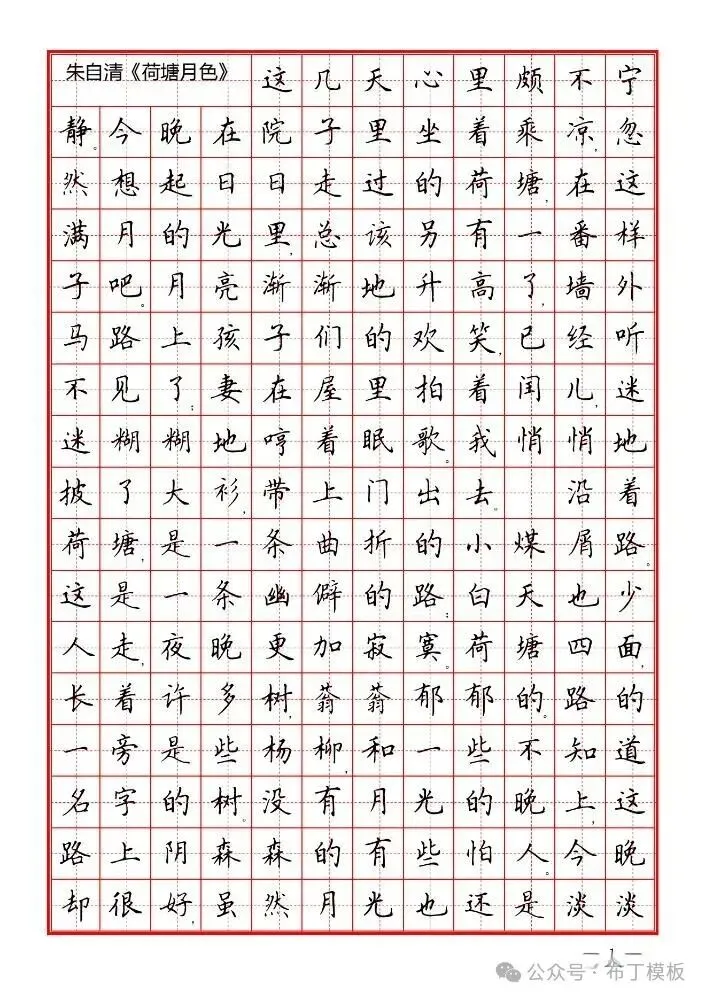 朱自清《荷塘月色》 这几天心里颇不宁
静。今晚在院子里坐着乘凉,忽
然想起日日走过的荷塘,在这
满月的光里,总该另有一番样
子吧。月亮渐渐地升高了,墙外
马路上孩子们的欢笑,已经听
不见了;妻在屋里拍着闰儿,迷
迷糊糊地哼着眠歌。我悄悄地
披了大衫,带上门出去。 沿着
荷塘,是一条曲折的小煤屑路。
这是一条幽僻的路;白天也少
人走,夜晚更加寂寞。荷塘四面,
长着许多树,蓊蓊郁郁的。路的
一旁是些杨柳,和一些不知道
名字的树。没有月光的晚上,这
路上阴森森的有些怕人。今晚
却很好,虽然月光也还是淡淡
— 1 —
公众号·布丁模板